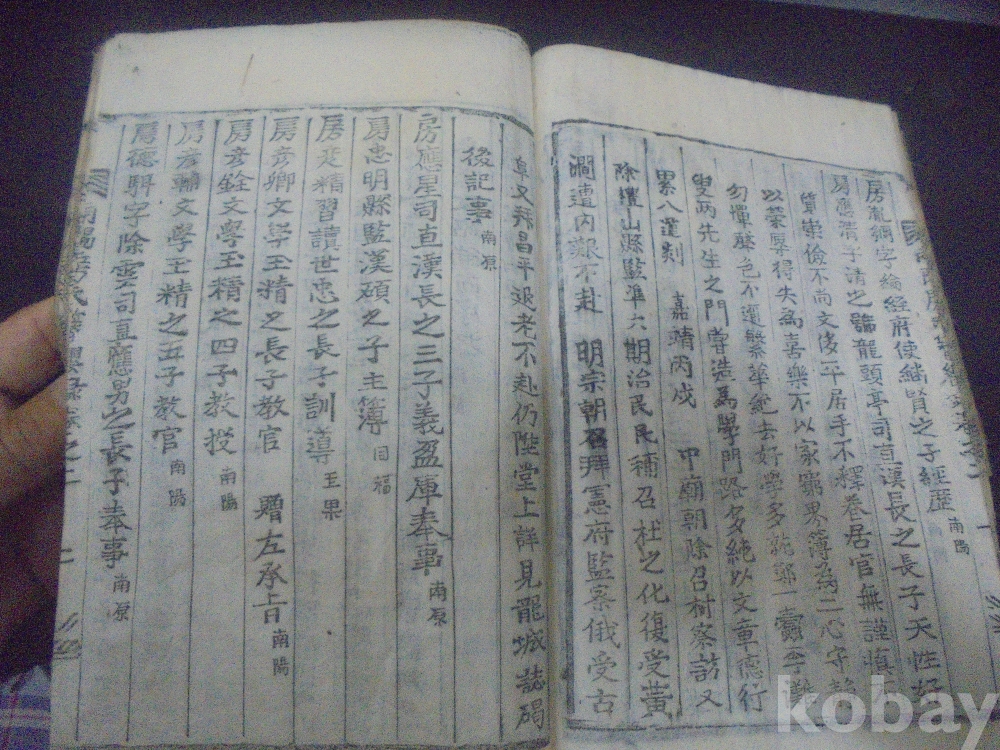 房胤綱字綸經府使績賢之子經歷 南陽
房應清子清之號龍頭亭司直漢長之長子天性好
崇儉不尚文侈平居手不釋卷居官無謹
以蒙辱得失為喜樂不以家累界簿為二心守
勿憚聲色不選繁華絶去好學多
叟兩先生之門嘗造為學門路多純以文章德行
累八道剡 嘉靖丙戌 中廟朝除召村察訪又
除懽山縣監準六期治民民稱召杜之化復受黃
澗遭內艱不赴 明宗朝召拜憲府監察俄受古
阜又拜昌平退老不赴仍陞堂上詳見龍城誌碣
後記事 南原
房應星司直漢長之三子義盈庫奉事 南原
房忠明縣監漢碩之子主簿 同福
房是精習讀世忠之長子訓導 玉果
房彦卿文學玉精之長子教官 贈左承旨 南陽
房彦銓文學玉精之四子教授 南陽
房彦輔文學玉精之五子教官 南陽
房德駬字除雲司直應男之長子奉事 南原
kobay